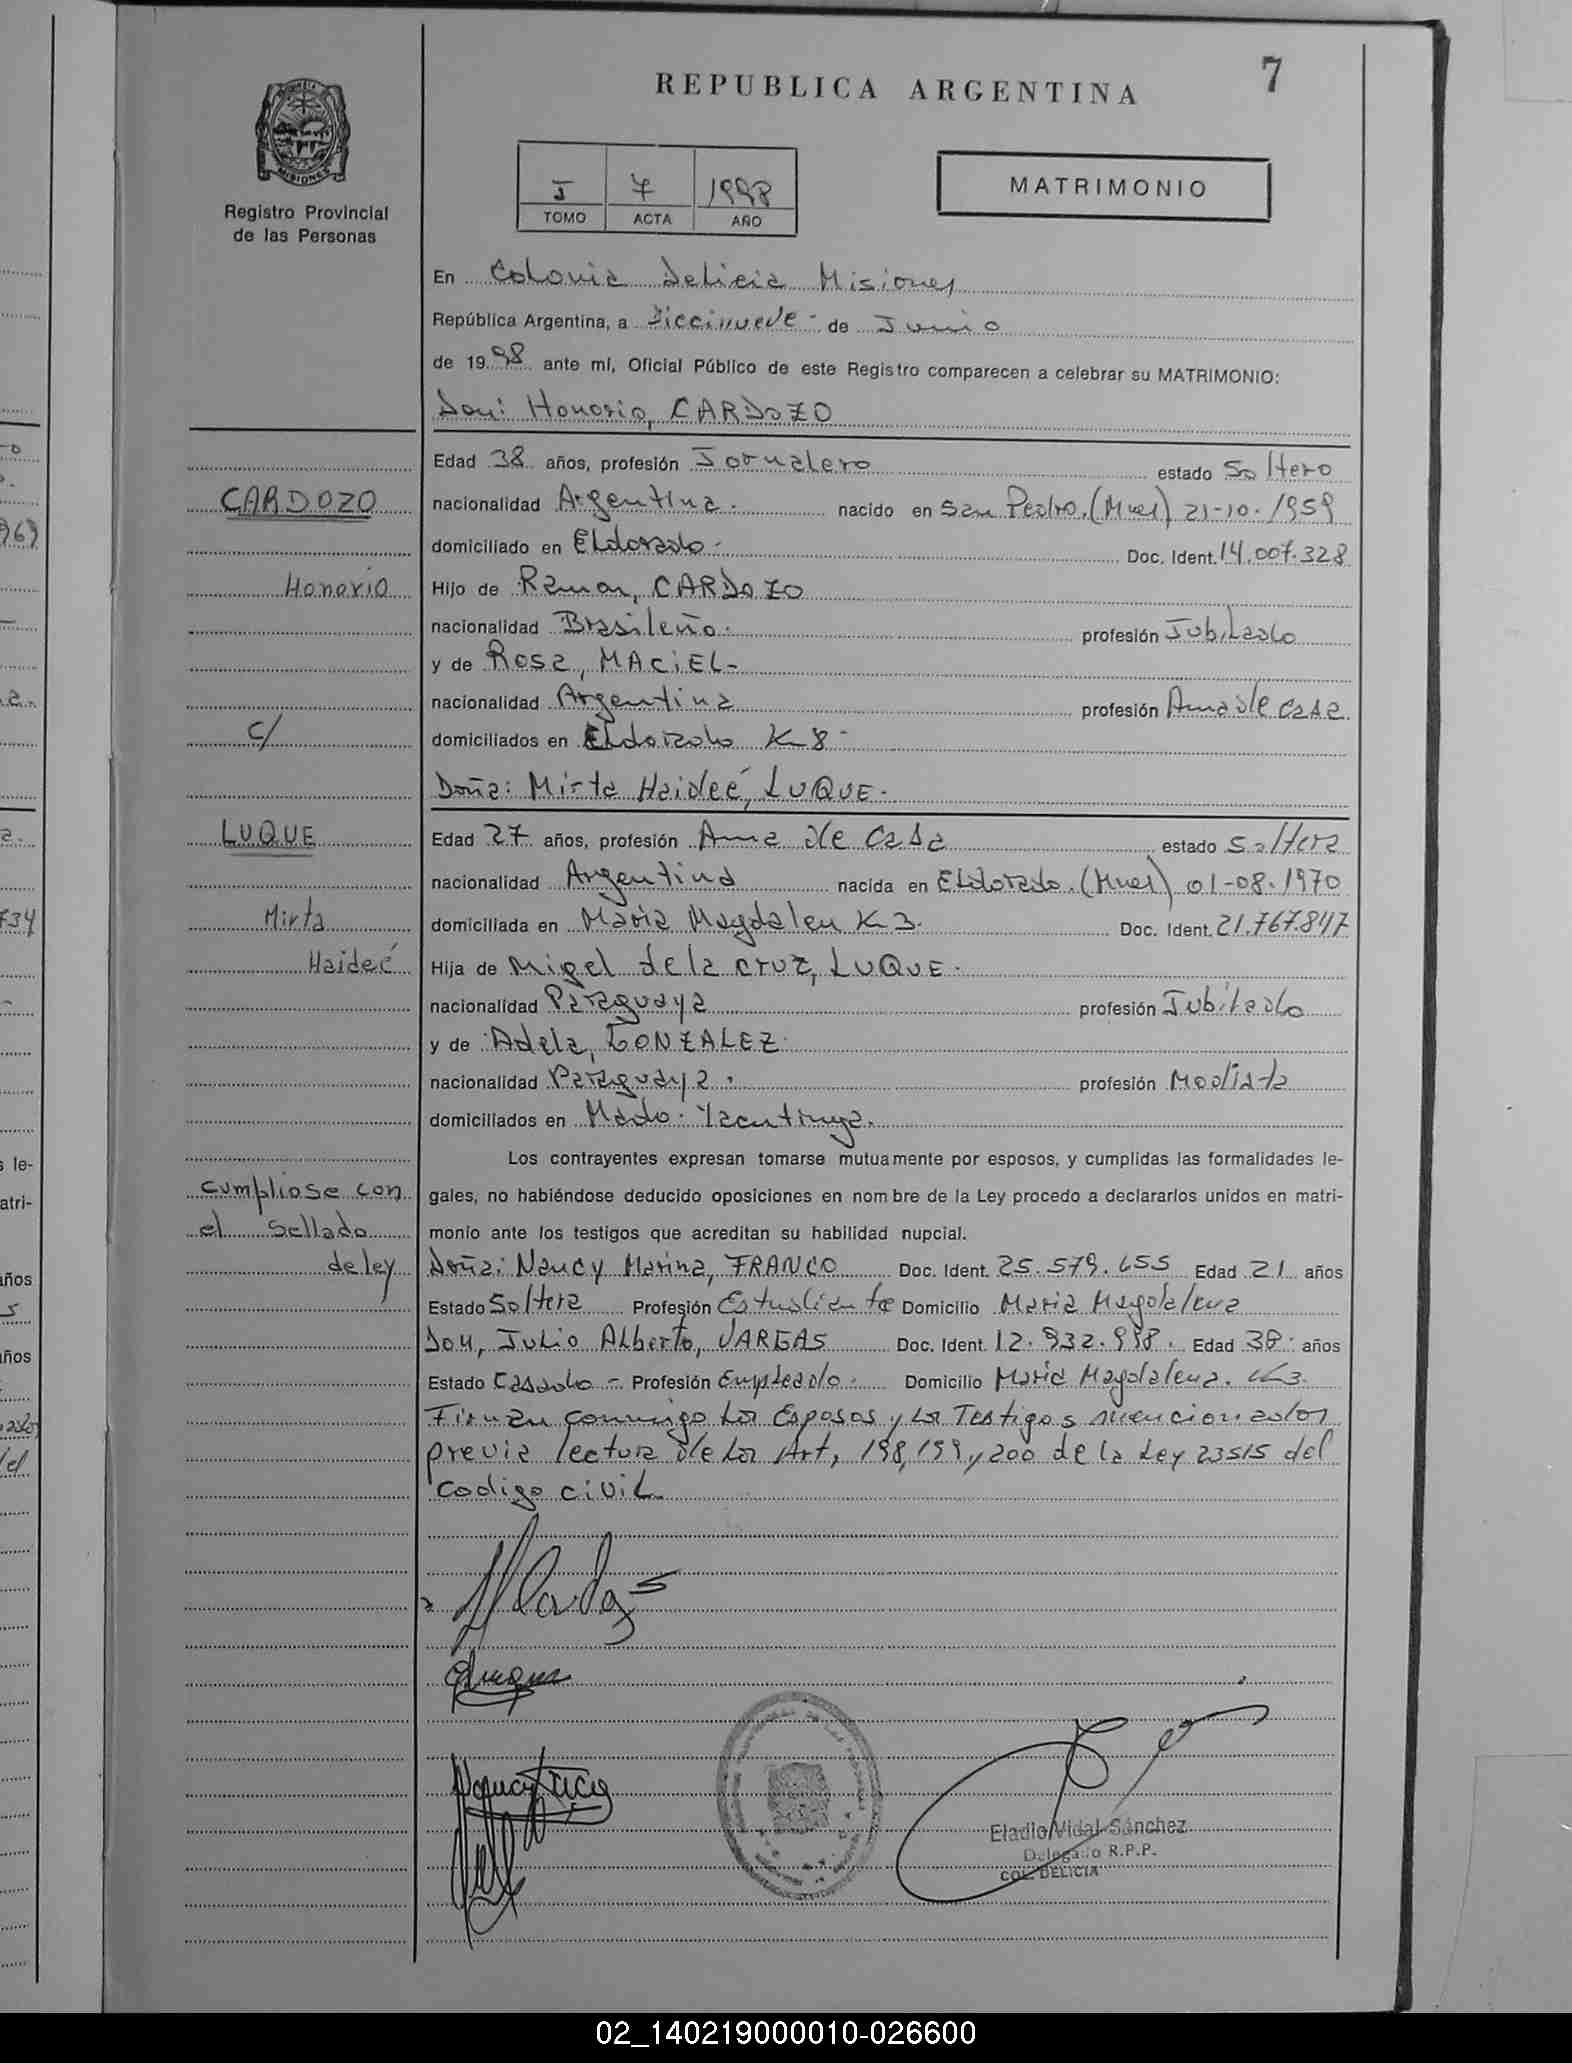 REPUBLICA ARGENTINA
7
MISIONES
Registro Provincial
de las Personas
I 7 1998
TOMO ACTA AÑO
MATRIMONIO
En Colonia Delicia Misiones
República Argentina, a Diecinueve - de Junio
de 1998 ante mí, Oficial Público de este Registro comparecen a celebrar su MATRIMONIO:
Don: Honorio, CARDOZO
Edad 38 años, profesión Jornalero estado Soltero
CARDOZO
nacionalidad Argentina. nacido en San Pedro. (Mnes) 21-10-1959
domiciliado en Eldorado. Doc. Ident. 14.007.328
Honorio
Hijo de Ramon, CARDOZO
nacionalidad Brasileño. profesión Jubilado
y de Rosa, MACIEL-
nacionalidad Argentina profesión Ama de casa
c/
domiciliados en Eldorado K-8-
Doña: Mirta Haideé, LUQUE.
LUQUE
Edad 27 años, profesión Ama de Casa estado Soltera
nacionalidad Argentina nacida en Eldorado. (Mnes) 01-08-1970
Mirta
domiciliada en Maria Magdalen K 3. Doc. Ident. 21.767.847
Haideé
Hija de Migel de la cruz, LUQUE.
nacionalidad Paraguaya profesión Jubilado
y de Adela, GONZALEZ.
nacionalidad Paraguaya. profesión Modista
domiciliados en Mado. Yacutinga.
Los contrayentes expresan tomarse mutuamente por esposos, y cumplidas las formalidades le-
cumpliose con
gales, no habiéndose deducido oposiciones en nombre de la Ley procedo a declararlos unidos en matri-
el sellado
monio ante los testigos que acreditan su habilidad nupcial.
de ley
Doña: Nancy Marina, FRANCO Doc. Ident. 25.579.655 Edad 21 años
Estado Soltera Profesión Estudiante Domicilio Maria Magdalena
Don, Julio Alberto, VARGAS Doc. Ident. 12.932.998. Edad 38 años
Estado Casado - Profesión Empleado. Domicilio Maria Magdalena. K-3.
Firman conmigo los Esposos y los Testigos mencionados
previa lectura de los Art, 198, 199 y 200 de la Ley 23515 del
Codigo civil.
Eladio Vidal Sánchez
Delegado R.P.P.
COL. DELICIA
02_140219000010-026600